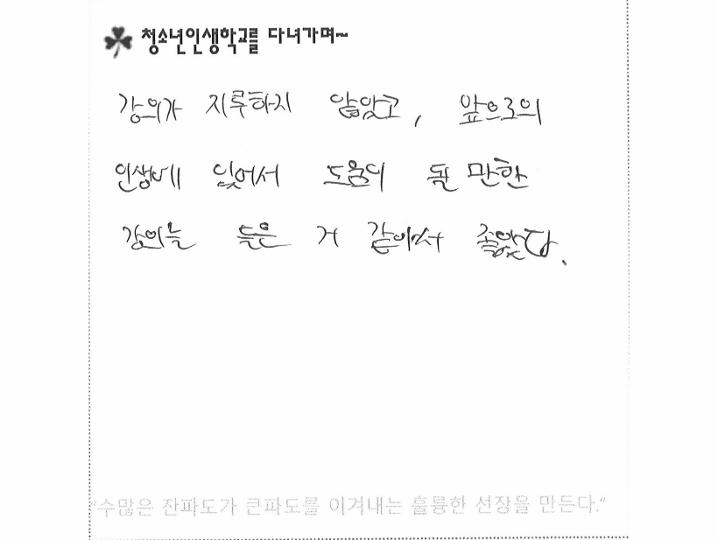 청소년인생학교를 다녀가며~
강의가 지루하지 않았고, 앞으로의
인생에 있어서 도움이 될 만한
강의를 들은 거 같아서 좋았다.
"수많은 잔파도가 큰파도를 이겨내는 훌륭한 선장을 만든다."